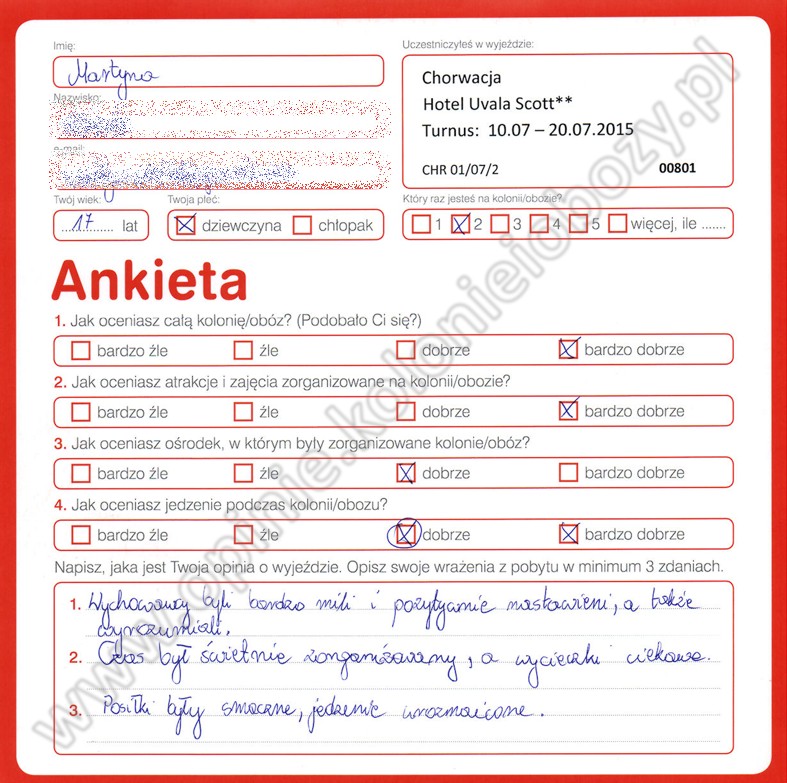 Imię:
Martyna
Nazwisko:
e-mail:
Twój wiek:
17 lat
Twoja płeć:
dziewczyna chłopak
Uczestniczyłeś w wyjeździe:
Chorwacja
Hotel Uvala Scott**
Turnus: 10.07 – 20.07.2015
CHR 01/07/2 00801
Który raz jesteś na kolonii/obozie?
1 2 3 4 5 więcej, ile .......
Ankieta
1. Jak oceniasz całą kolonię/obóz? (Podobało Ci się?)
bardzo źle źle dobrze bardzo dobrze
2. Jak oceniasz atrakcje i zajęcia zorganizowane na kolonii/obozie?
bardzo źle źle dobrze bardzo dobrze
3. Jak oceniasz ośrodek, w którym były zorganizowane kolonie/obóz?
bardzo źle źle dobrze bardzo dobrze
4. Jak oceniasz jedzenie podczas kolonii/obozu?
bardzo źle źle dobrze bardzo dobrze
Napisz, jaka jest Twoja opinia o wyjeździe. Opisz swoje wrażenia z pobytu w minimum 3 zdaniach.
1. Wychowawcy byli bardzo mili i pozytywnie nastawieni, a także
wyrozumiali.
2. Czas był świetnie zorganizowany, a wycieczki ciekawe.
3. Posiłki były smaczne, jedzenie urozmaicone.
www.opinie.kolonieiobozy.pl